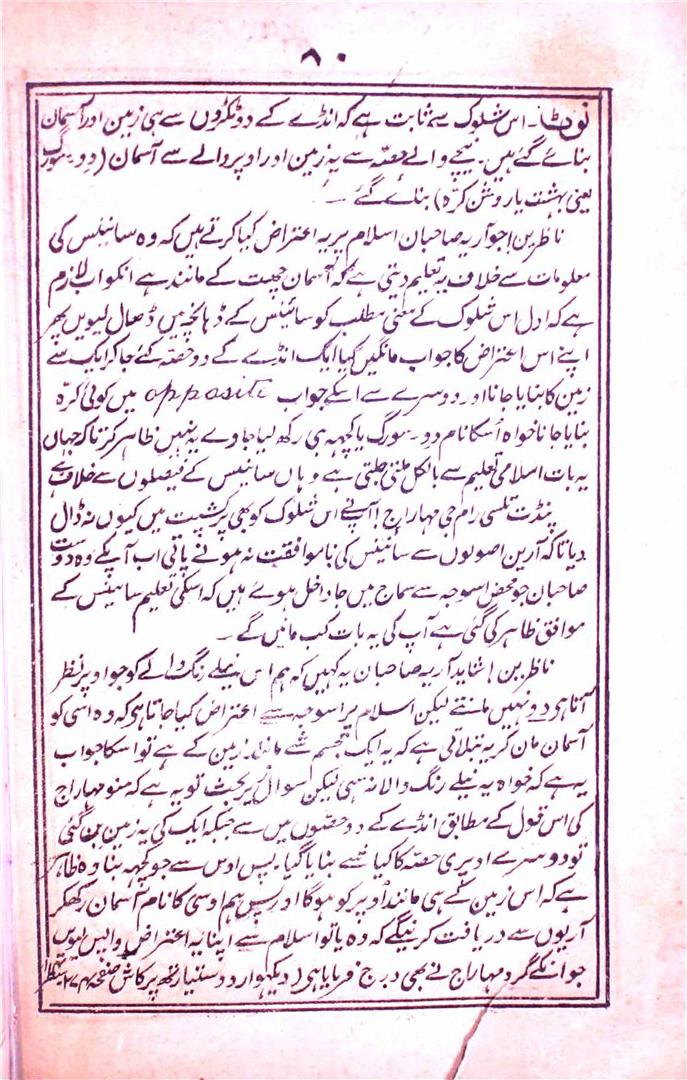 ۸۰
نوٹ۔ اس شلوک سے ثابت ہے کہ انڈے کے دو ٹکڑوں سے ہی زمین اور آسمان
بنائے گئے ہیں۔ نیچے والے حصّہ سے یہ زمین اور اوپر والے سے آسمان (دو۔ سورگ
یعنی بہشت یا روشن کرّہ) بنائے گئے۔
ناظرین! جو آریہ صاحبان اسلام پر یہ اعتراض کیا کرتے ہیں کہ وہ سائینس کی
معلومات سے خلاف یہ تعلیم دیتی ہے کہ آسمان چھت کے مانند ہے انکو اب لازم
ہے کہ اول اس شلوک کے معنی مطلب کو سائینس کے ڈہانچہ میں ڈھال لیویں پھر
اپنے اس اعتراض کا جواب مانگیں گیا ایک انڈے کے دو حصّہ کئے جا کر ایک سے
زمین کا بنایا جانا اور دوسرے سے اسکے جواب opposite میں کوئی کرّہ
بنایا جانا خواہ اُسکا نام دو۔ سورگ یا کچہہ ہی رکھ لیا جاوے یہ نہیں ظاہر کرتا کہ جہاں
یہ بات اسلامی تعلیم سے بالکل ملتی جلتی ہے وہاں سائینس کے فیصلوں سے خلاف ہے
پنڈت تلسی رام جی مہاراج! آپنے اس شلوک کو بھی پرکشپت میں کیوں نہ ڈال
دیا تاکہ آرین اصولوں سے سائینس کی نا موافقت نہ ہونے پاتی اب آپکے وہ دوست
صاحبان جو محض اسوجہ سے سماج میں جا داخل ہوئے ہیں کہ اسکی تعلیم سائینس کے
موافق ظاہر کی گئی ہے آپ کی یہ بات کب مانیں گے۔
ناظرین! شاید آریہ صاحبان یہ کہیں کہ ہم اس نیلے رنگ والے کو جو اوپر نظر
آتا ہی دو نہیں مانتے لیکن اسلام پر اسوجہ سے اعتراض کیا جاتا ہی کہ وہ اسی کو
آسمان مان کر یہ بتلاتی ہے کہ یہ ایک مجسم شے مانند زمین کے ہے تو اسکا جواب
یہ ہے کہ خواہ یہ نیلے رنگ والا نہ سہی لیکن سوال زیر بحث تو یہ ہے کہ منو مہاراج
کی اس قول کے مطابق انڈے کے دو حصّوں میں سے جبکہ ایک کی یہ زمین بن گئی
تو دوسرے اوپری حصّہ کا کیا شے بنایا گیا۔ پس اوس سے جو کچہہ بنا وہ ظاہر
ہے کہ اس زمین کے ہی مانند اُوپر کو ہوگا اور پس ہم اوسی کا نام آسمان رکھکر
آریوں سے دریافت کرینگے کہ وہ یا تو اسلام سے اپنا یہ اعتراض واپس لیویں
جو انکے گرو مہاراج نے بھی درج فرمایا ہی (دیکہو اردو ستیارتھ پرکاش صفحہ